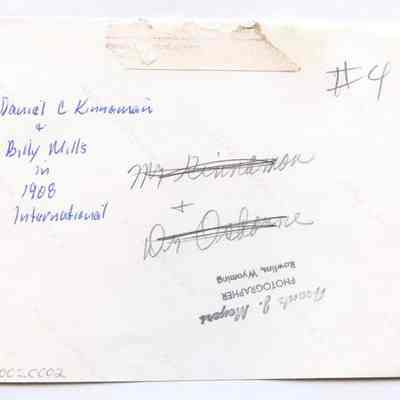 #4
Daniel C Kinnaman
+
Billy Mills
in
1908
International
Mr Kinnamon
+
Dr Osborne
Frank J. Meyers
PHOTOGRAPHER
Rawlins, Wyoming
002CC02